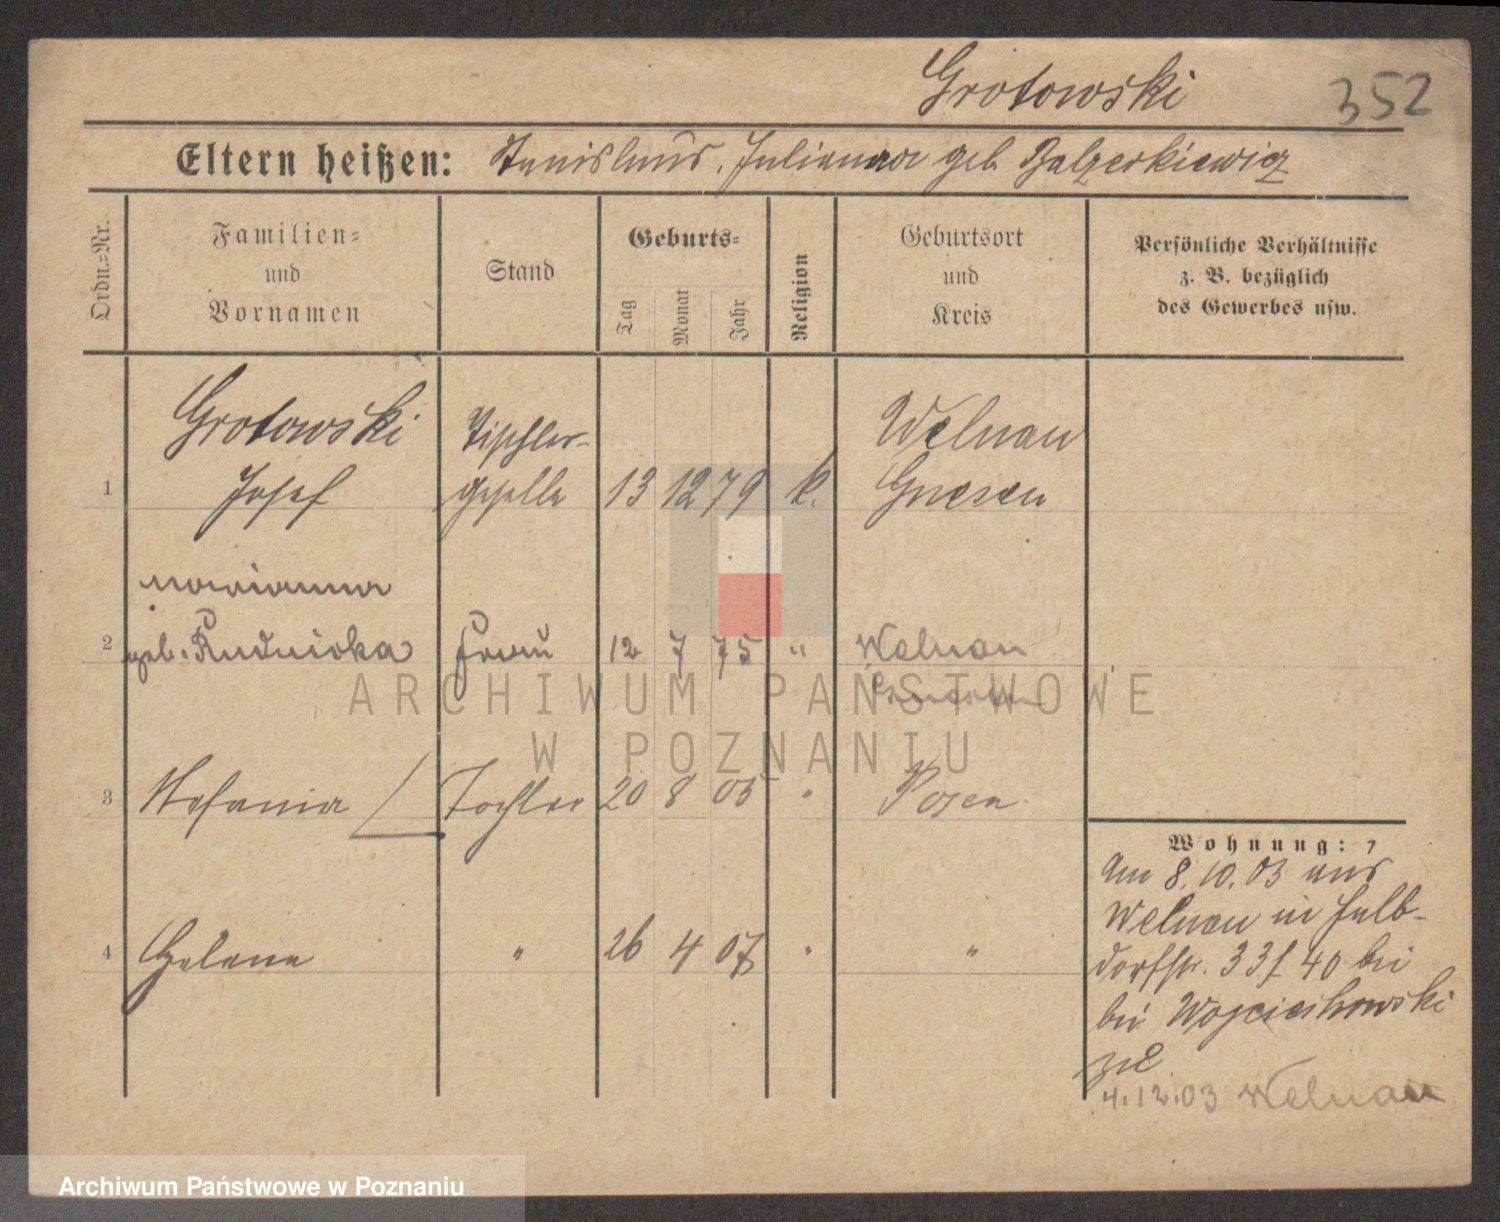 Grotowski
352
Eltern heißen: Stanislaus, Julianna geb Balzerkiewicz
Ordn.=Nr.
Familien=
und
Vornamen
Stand
Geburts=
Tag
Monat
Jahr
Religion
Geburtsort
und
Kreis
Persönliche Verhältnisse
z. B. bezüglich
des Gewerbes usw.
Grotowski Tischler- Welnau
1 Josef geselle 13 12 79 k. Gnesen
Marianna
2 geb. Rudnicka Frau 12 7 75 " Welnau
3 Stefania Tochter 20 8 05 " Posen
4 Helene " 26 4 07 " "
Wohnung:
Am 8.10.03 aus
Welnau in Halb-
dorfstr. 33/40 bei
bei Wojciechowski
4.12.03 Welnau
ARCHIWUM PAŃSTWOWE
W POZNANIU
Archiwum Państwowe w Poznaniu